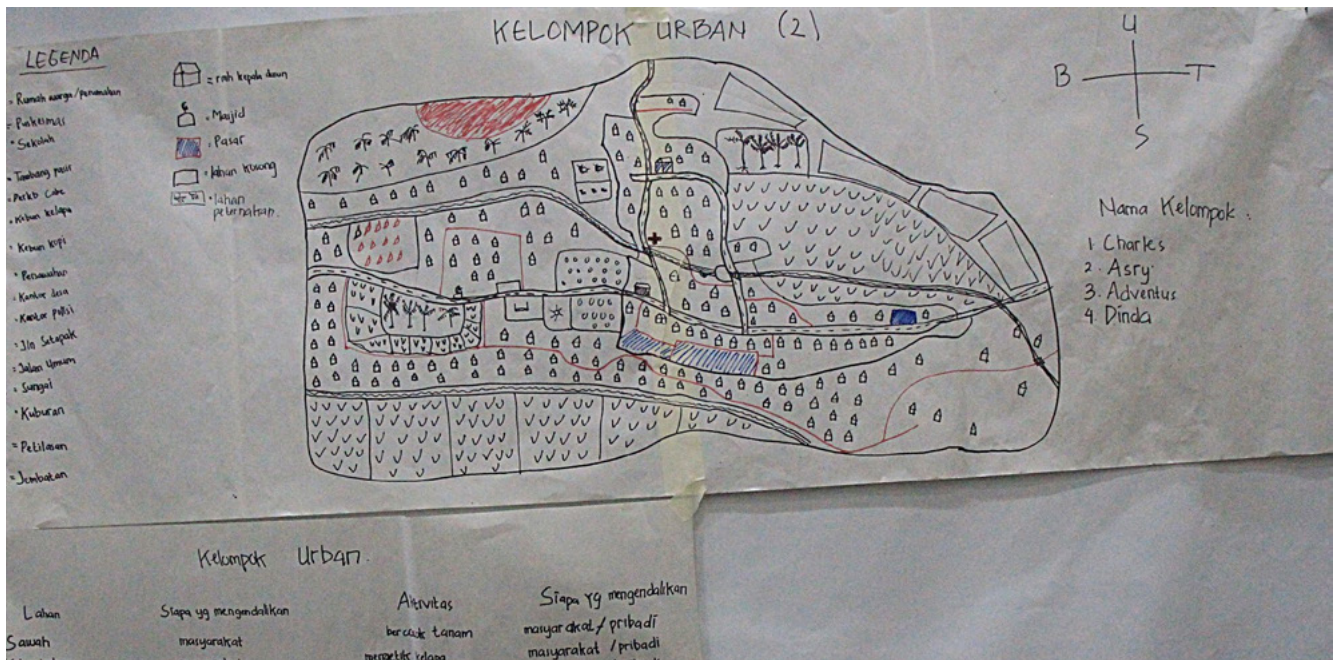 KELOMPOK URBAN (2)
LEGENDA
= Rumah warga/perumahan
= Puskesmas
* Sekolah
* Tambang pasir
= Kebun kelapa
* Kebun kopi
* Persawahan
= Kantor desa
= Kantor polisi
* Jln Setapak
= Jalan Umum
= Sungai
* Kuburan
= Petilasan
= Jembatan
= rmh kepala dusun
= Masjid
= Pasar
= lahan kosong
= lahan
peternakan.
U
B T
S
Nama Kelompok :
1. Charles
2. Asry
3. Adventus
4. Dinda
Kelompok Urban.
Lahan Siapa yg mengendalikan Aktivitas Siapa yg mengendalikan
Sawah masyarakat bercocok tanam masyarakat / pribadi
memetik kelapa masyarakat / pribadi